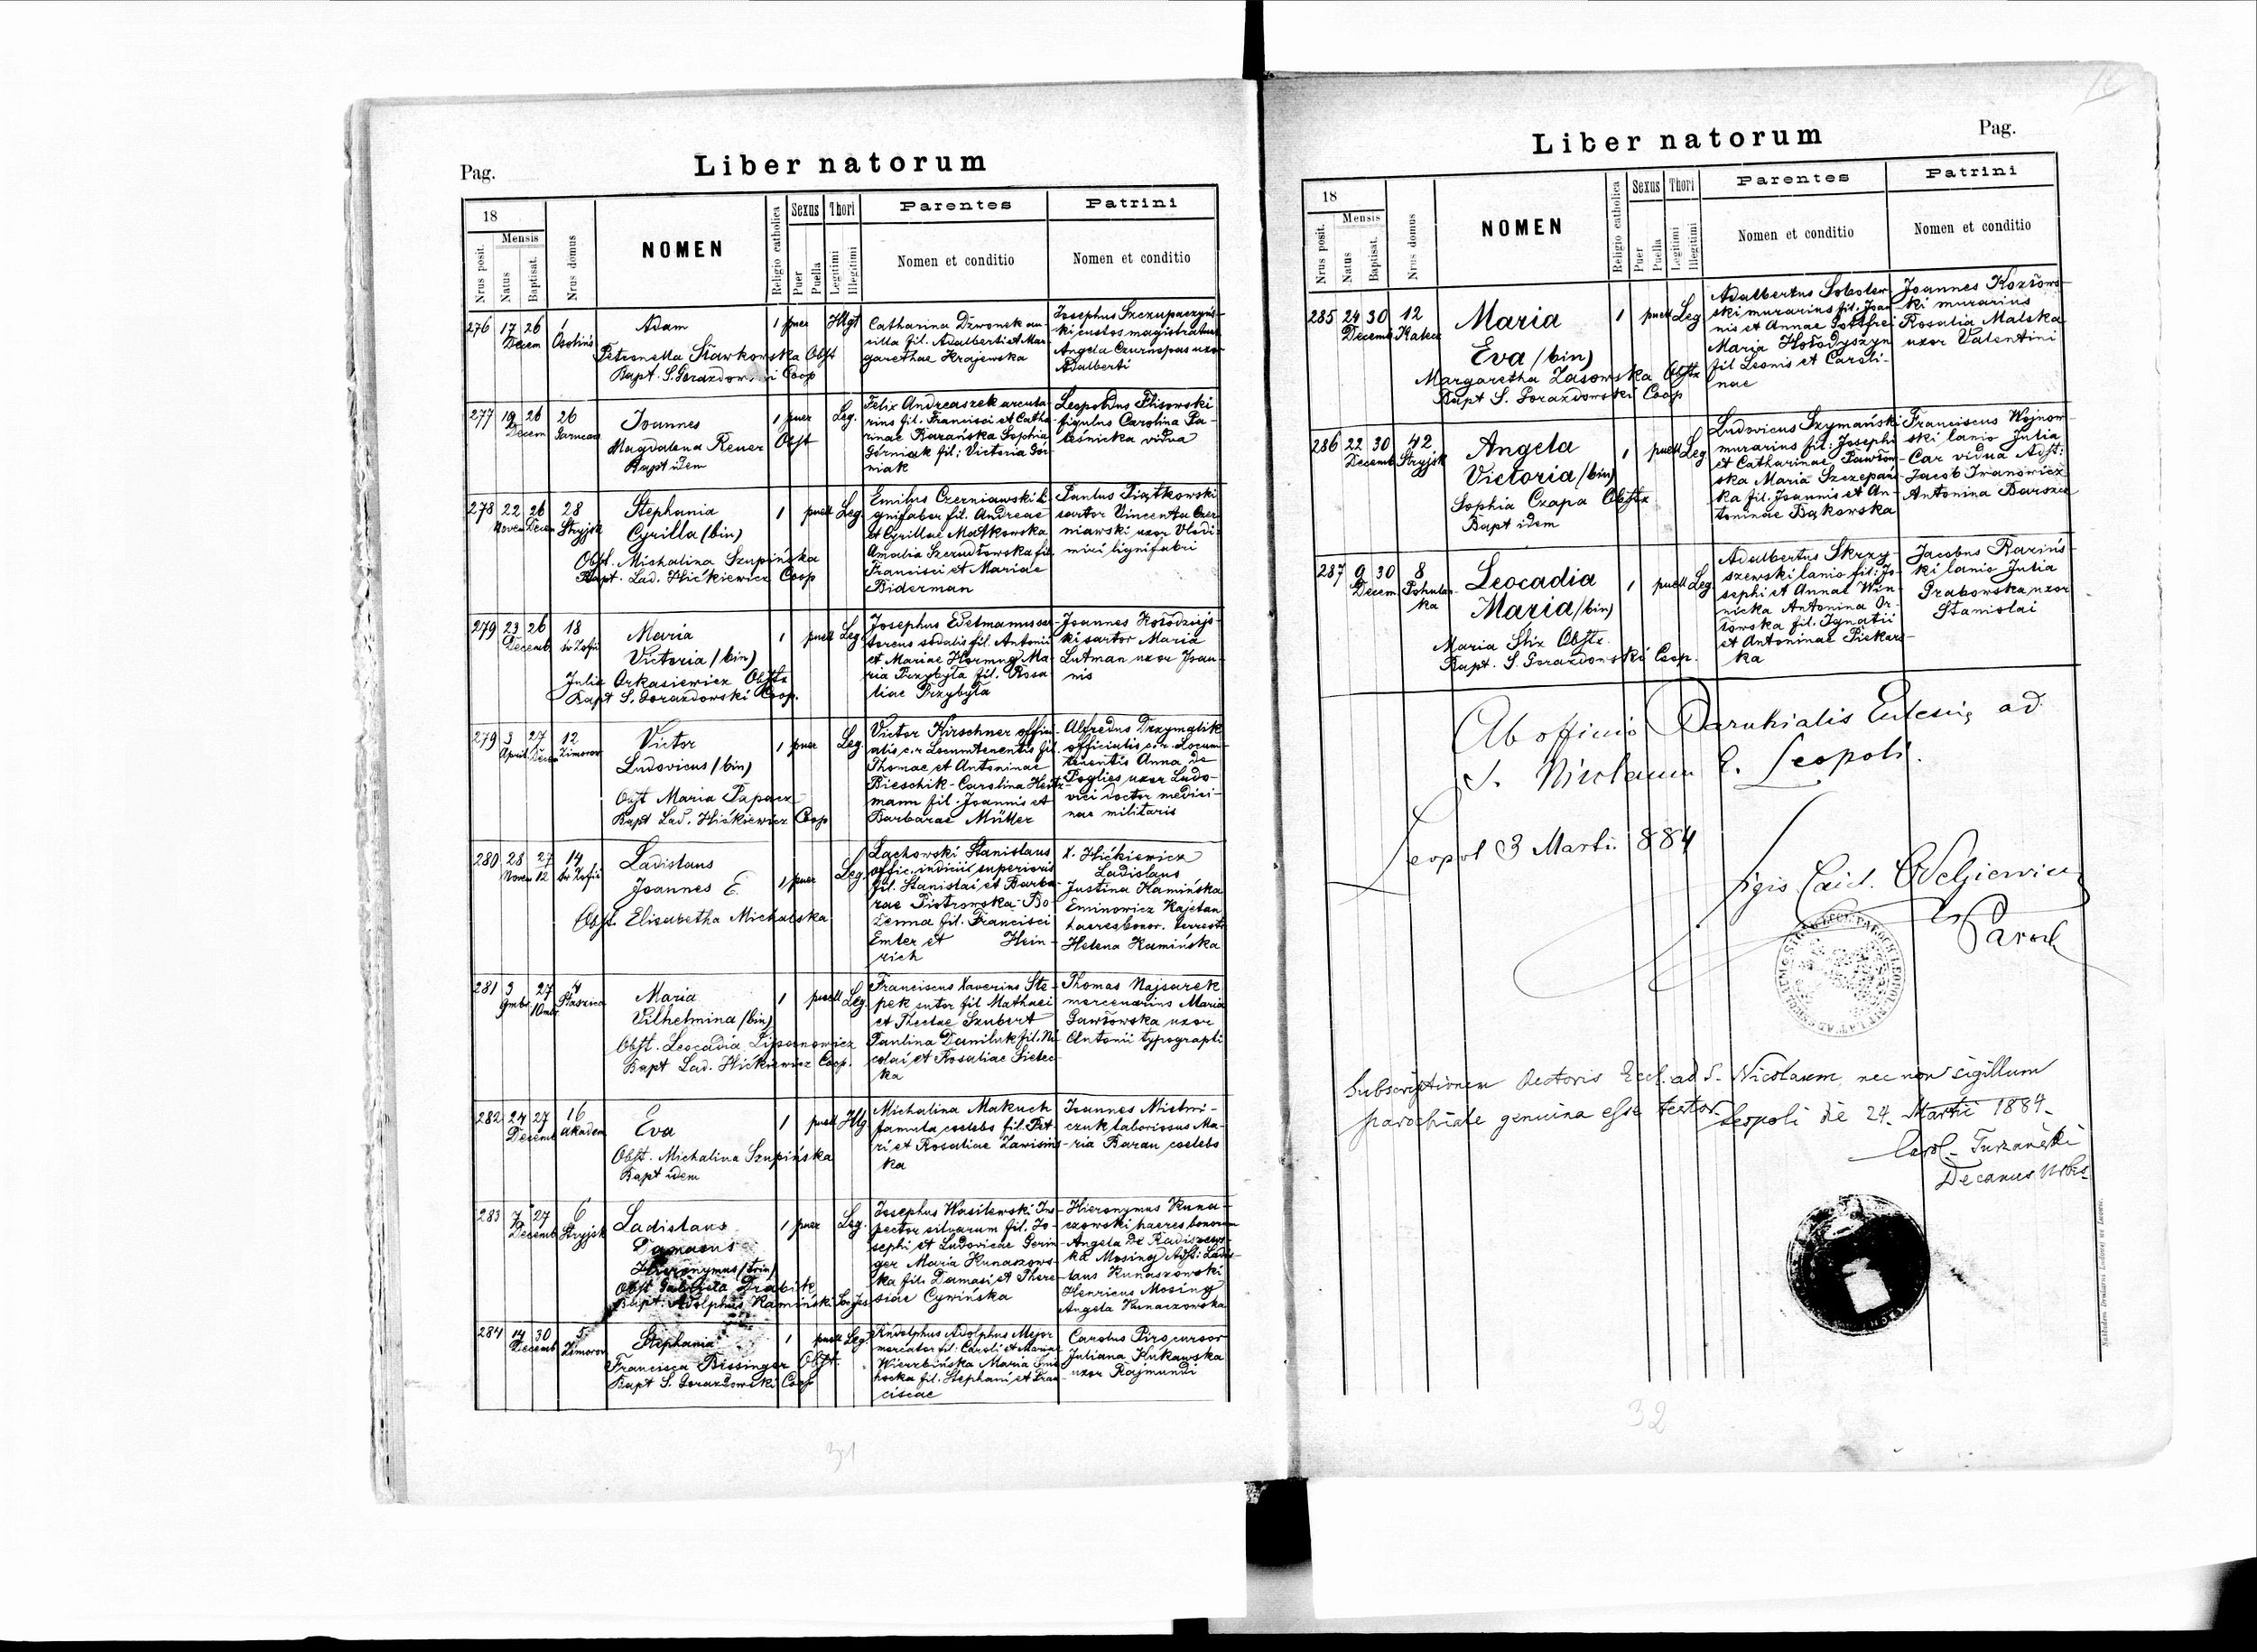 Pag.
Liber natorum
18
Mensis
Nrus posit.
Natus
Baptisat.
Nrus domus
NOMEN
Religio catholica
Sexus
Puer
Puella
Thori
Legitimi
Illegitimi
Parentes
Nomen et conditio
Patrini
Nomen et conditio
276 17 26 1
Decem
Adam
1 puer
Petronella Sławkowska Obst
Bapt. S. Gorazdowski Coop
Catharina Dzwonek an-
cilla fil. Adalberti et Mar-
garethae Krajewska
Josephus Szczupaczyńs-
ki custos magistratus
Angela Czurnopas uxor
Adalberti
277 19 26 26
Decem
Joannes
1 puer Leg.
Magdalena Reuer Obst
Bapt idem
Felix Andreaszek arcula-
rius fil. Francisci et Catha-
rinae Barańska Sophia
Górniak fil: Victoria Gór-
niak
Leopoldus Flisowski
figulus Carolina Pa-
leśnicka vidua
278 22 26 28
Novem Decem Stryjsk
Stephania
Cyrilla (bin)
1 puell Leg
Obst. Michalina Szupińska
Bapt. Lad. Hićkiewicz Coop
Emilus Czerniawski li-
gnifaber fil. Andreae
et Cyrillae Matkowska
Amalia Szczudłowska fil.
Francisci et Mariae
Biderman
Paulus Piątkowski
sartor Vincenta Czer-
niawski uxor Vlodi-
miri lignifabri
279 23 26 18
Decemb św Zofii
Maria
Victoria (bin)
1 puell Leg
Julia Arkasiewicz Obstx
Bapt S. Gorazdowski Coop.
Josephus
sodalis fil. Antonii
et Mariae Ma-
ria Przybyła fil. Rosa-
liae Przybyła
Joannes Kołodziejs-
ki sartor Maria
Lutman uxor Joan-
nis
279 3 27 12
April Decem Zimorow
Victor
Ludovicus (bin)
1 puer Leg.
Obst Maria Papacz
Bapt Lad. Hićkiewicz Coop
Victor Kirschner offici-
alis c.r Locumtenentis fil.
Thomae et Antoninae
Bieschik - Carolina Heitz-
mann fil. Joannis et
Barbarae Müller
Alfredus Drzymalik
officialis c.r. Locum-
tenentis Anna de
Poglies uxor Ludo-
vici doctor medici-
nae militaris
280 28 27 14
Novem 12 św Zofii
Ladislaus
Joannes E.
1 puer Leg.
Obst. Elisabetha Michalska
Lachowski Stanislaus
offic. indicii superioris
fil. Stanislai et Barba-
rae Piotrowska - Bo-
żenna fil. Francisci
Emler et Hein-
rich
X. Hićkiewicz
Ladislaus
Justina Kamińska
Eminowicz Kajetan
haeres bonor. terrestr
Helena Kamińska
281 3 27 4
9mbr 10mbr
Maria
Vilhelmina (bin)
1 puell Leg.
Obst. Leocadia Lipanowicz
Bapt Lad. Hićkiewicz Coop.
Franciscus Xaverius Ste-
pek sutor fil Mathaei
et Theclae Szubert
Paulina Daniluk fil. Ni-
colai et Rosaliae Sielec-
ka
Thomas Najsarek
mercenarius Maria
Gawłowska uxor
Antonii typographi
282 24 27 16
Decemb Akadem
Eva
1 puell Illg
Obst. Michalina Szupińska
Bapt idem
Michalina Makuch
famula coelebs fil. Pet-
ri et Rosaliae Zawisińs-
ka
Joannes Mielni-
czuk laboriosus Ma-
ria Baran coelebs
283 7 27 6
Decemb Stryjsk
Ladislaus
Damasus
Hieronymus (trin)
1 puer Leg.
Obst Gabriela Drabik
Bapt: Adolphus Kamiński Soc Jes
Josephus Wasilewski Ins-
pector silvarum fil. Jo-
sephi et Ludovicae Gerin-
ger Maria Kunaszows-
ka fil. Damasi et There-
siae Cywińska
Hieronymus Kuna-
szowski haeres bonorum
Angela de Radiszews-
ka Mosing Adst: Ladis-
laus Kunaszowski
Henricus Mosing
Angela Kunaszowska
284 14 30 5
Decemb Zimorow
Stephania
1 puell Leg
Francisca Bissinger Obst.
Bapt S. Gorazdowski Coop
Rudolphus Adolphus Mejor
mercator fil: Caroli et Mariae
Wierzbińska Maria
fil. Stephani et Fran-
ciscae
Carolus Piro cursor
Juliana Kukawska
uxor Rajmundi
31
Liber natorum
Pag.
18
Mensis
Nrus posit.
Natus
Baptisat.
Nrus domus
NOMEN
Religio catholica
Sexus
Puer
Puella
Thori
Legitimi
Illegitimi
Parentes
Nomen et conditio
Patrini
Nomen et conditio
285 24 30 12
Decemb Kalecz
Maria
Eva (bin)
1 puell Leg
Margaretha Zasowska Obstx
Bapt S. Gorazdowski Coop
Adalbertus Sobolew-
ski murarius fil. Joan-
nis et Annae Gottfrei
Maria Hołodyszyn
fil Leonis et Caroli-
nae
Joannes Kozłows-
ki murarius
Rosalia Malska
uxor Valentini
286 22 30 42
Decemb Stryjsk
Angela
Victoria (bin)
1 puell Leg
Sophia Czapa Obstx
Bapt idem
Ludovicus Szymański
murarius fil: Josephi
et Catharinae Pawłow-
ska Maria Szczepań-
ka fil. Joannis et An-
toninae Bąkowska
Franciscus Wojnow-
ski lanio Julia
Car vidua Adst:
Jacob Iwanowicz
Antonina Barszcz
287 9 30 8
Decem Pohulan-
ka
Leocadia
Maria (bin)
1 puell Leg
Maria Stix Obstx
Bapt. S. Gorazdowski Coop.
Adalbertus Skrzy-
szewski lanio fil: Jo-
sephi et Annae Win-
nicka Antonina Or-
łowska fil. Ignatii
et Antoninae Piekars-
ka
Jacobus Barińs-
ki lanio Julia
Grabowska uxor
Stanislai
Ab officio Parochialis Ecclesiae ad
S. Nicolaum Leopoli.
Leopol 3 Marti. 884
Paroch
Subscriptionem Rectoris Eccl. ad S. Nicolaum, nec non sigillum
parochiale genuina esse testor. Leopoli die 24. Martii 1884.
Carol. Turzański
Decanus Urbis
32